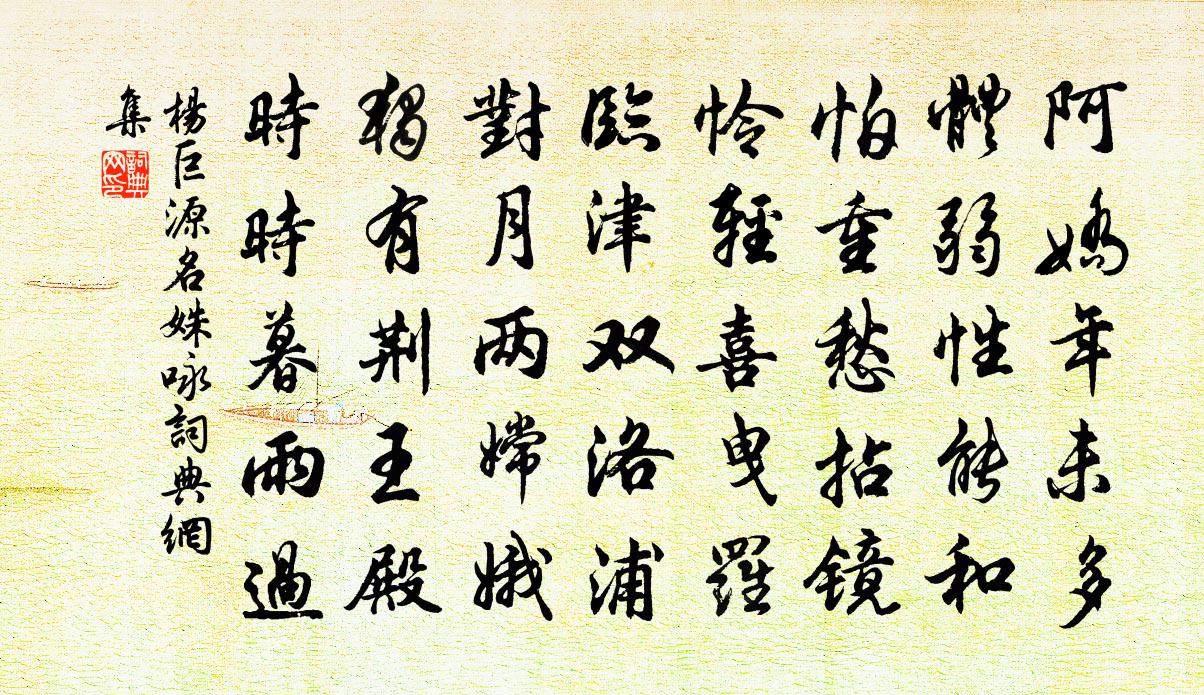 阿嬌年未多
體弱性能和
怕重愁拈鏡
怜輕喜曳羅
臨津双洛浦
對月两嫦娥
獨有荆王殿
時時暮雨過
楊巨源名姝咏詞典網
集
詞典
网印